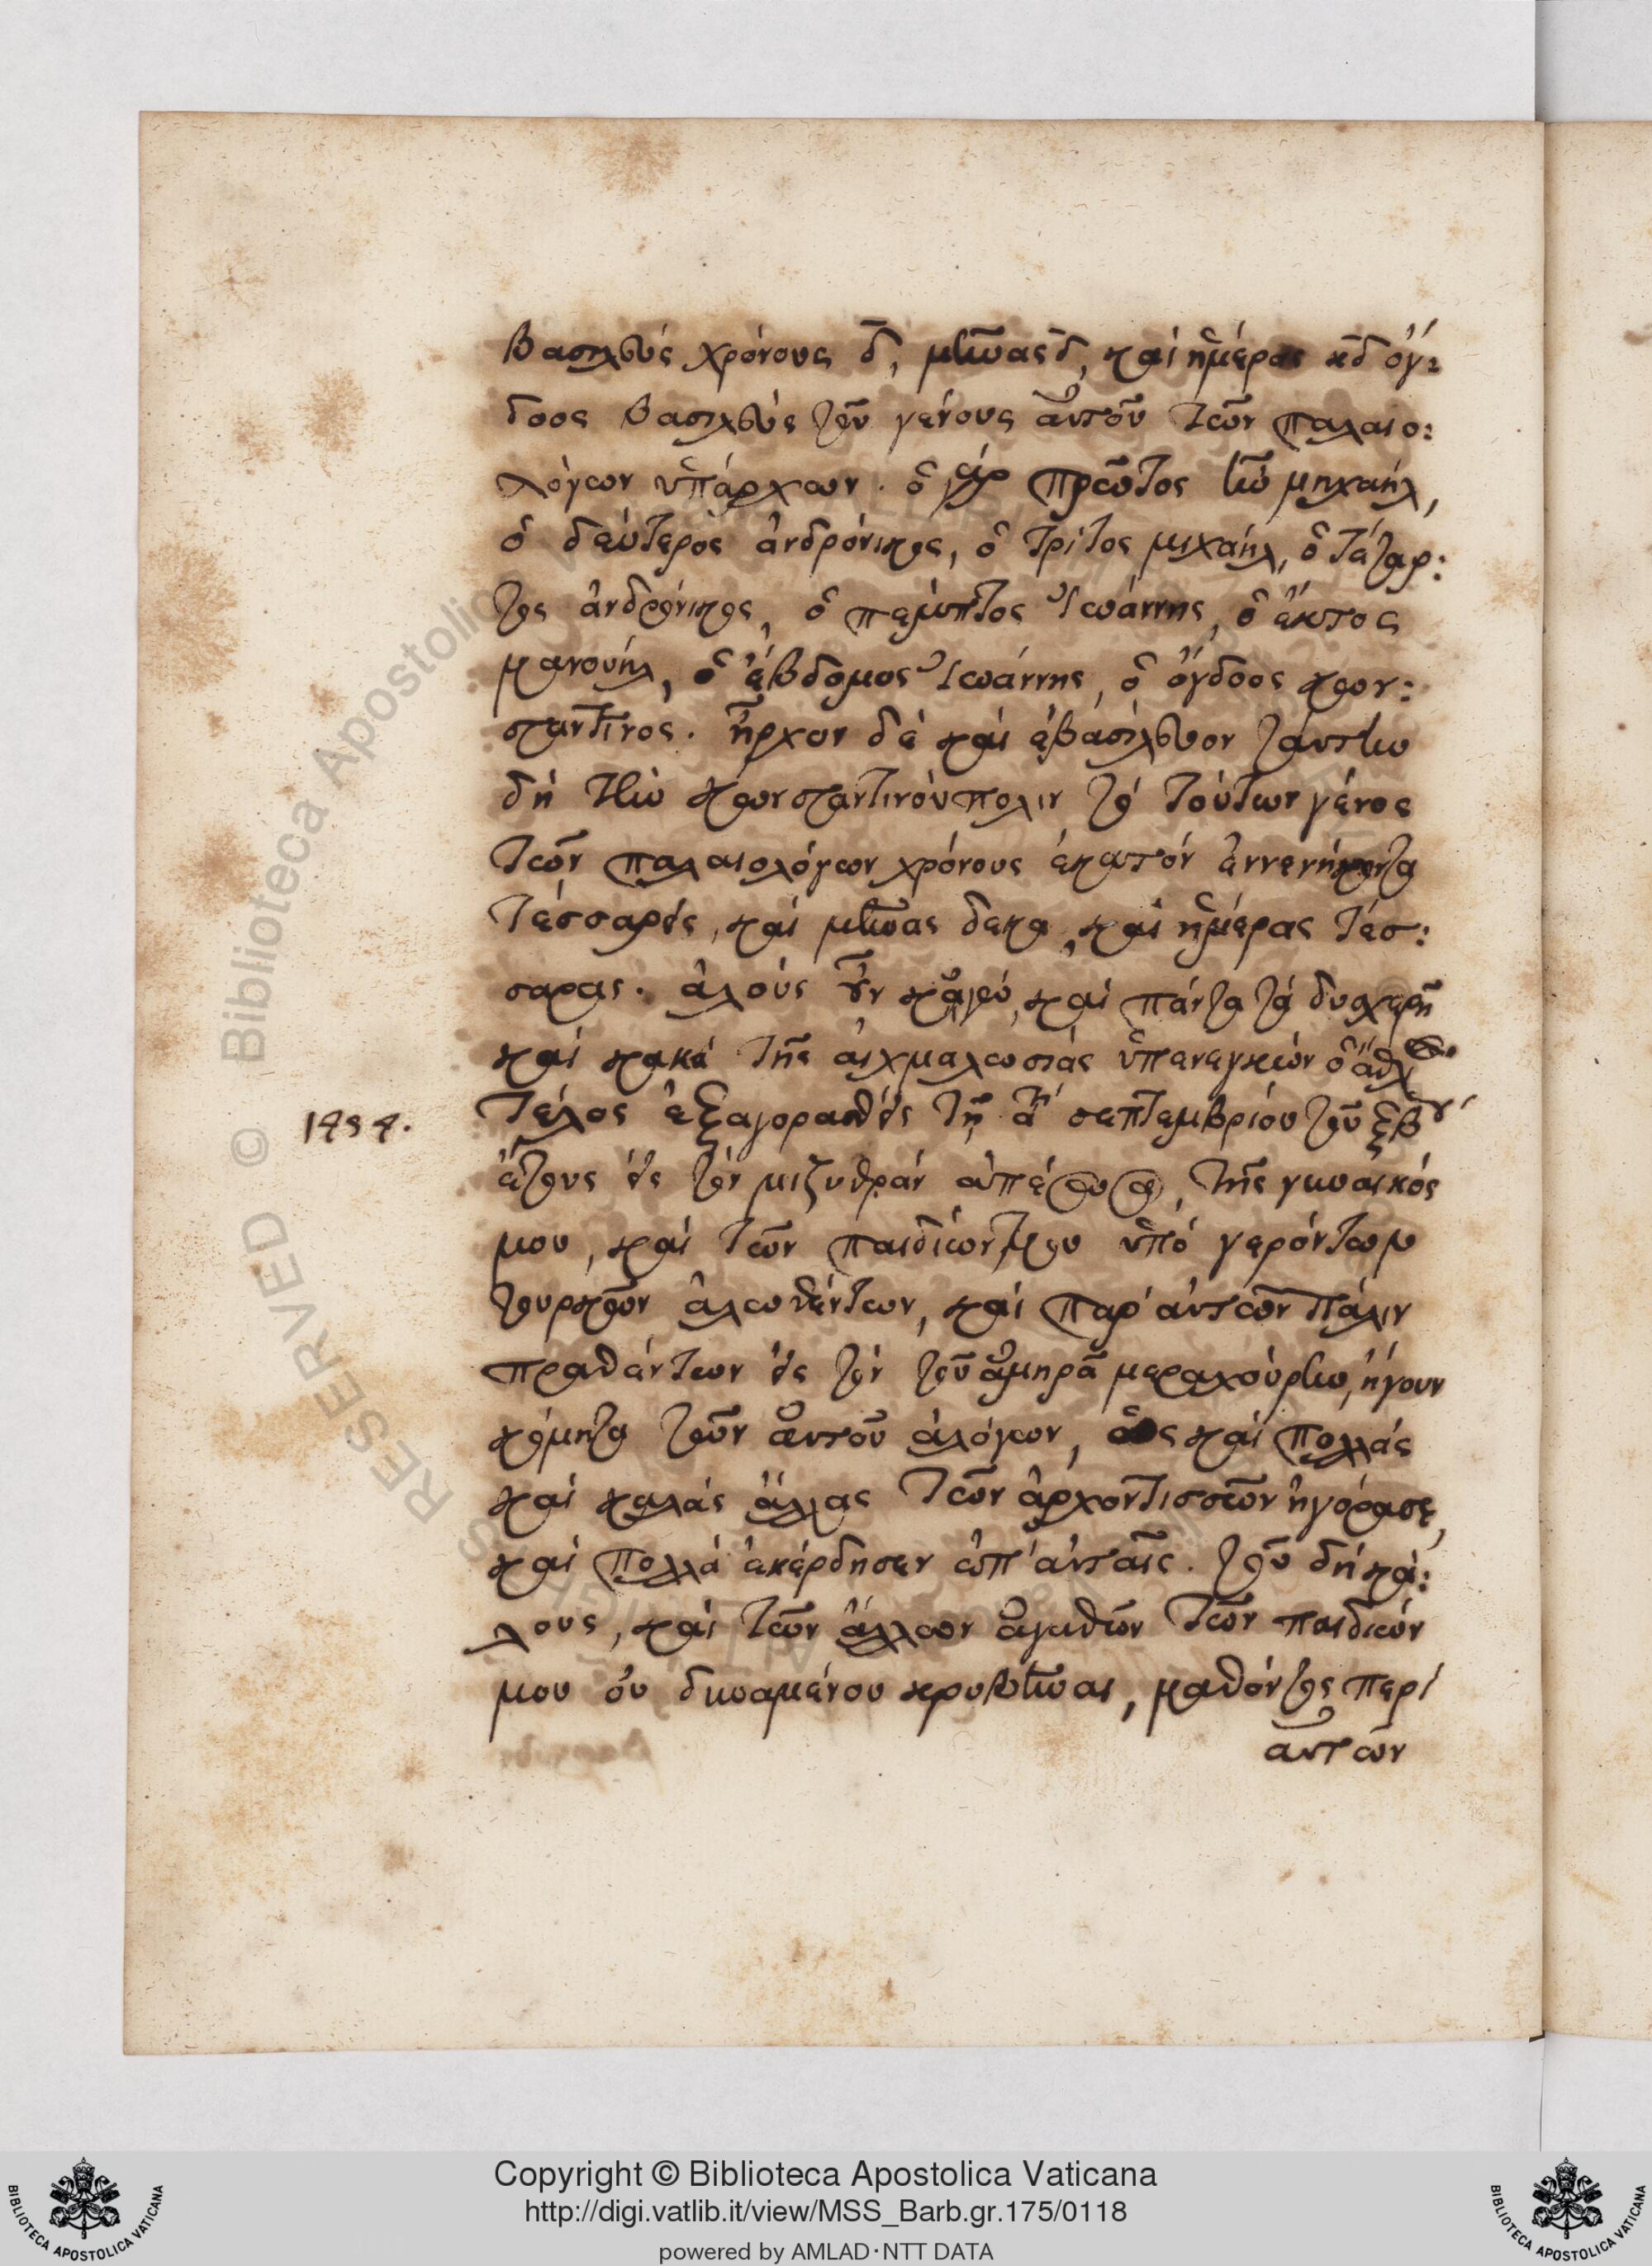 βασιλεὺς χρόνους δ, μῆνας δ, καὶ ἡμέρας κδ ὄγ:
δοος βασιλεὺς τοῦ γένους αὐτοῦ τῶν παλαιο:
λόγων ὑπάρχων. ὁ γὰρ πρῶτος ἦν μηχαήλ,
ὁ δεύτερος ἀνδρόνικος, ὁ τρίτος μιχαήλ, ὁ τέταρ:
τος ἀνδρόνικος, ὁ πέμπτος Ἰωάννης, ὁ ἕκτος
μανουήλ, ὁ ἕβδομος Ἰωάννης, ὁ ὄγδοος κων:
σταντῖνος. ἦρχον δὲ καὶ ἐβασίλευον ταύτην
δὴ τὴν κωνσταντινούπολιν τὸ τούτων γένος
τῶν παλαιολόγων χρόνους ἑκατὸν ἐννενήκοντα
τέσσαρεις, καὶ μῆνας δεκα, καὶ ἡμέρας τέσ:
σαρας. ἁλοὺς οὖν κἀγὼ, καὶ πάντα τὰ δυσχερῆ
καὶ κακὰ τῆς αἰχμαλωσίας ὑπενεγκὼν ὁ ἄθλιος
1454. τέλος ἐξαγορασθεὶς τῇ αῃ σεπτεμβρίου τοῦ ξβου
ἔτους εἰς τὸν μιζυθρὰν ἀπέσωσα, τῆς γυναικός
μου, καὶ τῶν παιδίων μου ὑπὸ γερόντων
τουρκῶν ἁλωθέντων, καὶ παρ' αὐτῶν πάλιν
πραθέντων εἰς τὸν τοῦ ἀμηρᾶ μεραχούρην, ἤγουν
κόμητα τῶν αὐτοῦ ἀλόγων, ὃς καὶ πολλὰς
καὶ καλὰς ἄλλας τῶν ἀρχοντισσῶν ἠγόρασε,
καὶ πολλὰ ἐκέρδησεν ἐπ' αὐταῖς. τοῦ δὴ κά:
λους, καὶ τῶν ἄλλων ἀγαθῶν τῶν παιδιών
μου οὐ δυναμένου κρυβῆναι, μαθόντος περὶ
αὐτῶν
Copyright © Biblioteca Apostolica Vaticana
http://digi.vatlib.it/view/MSS_Barb.gr.175/0118
powered by AMLAD·NTT DATA
BIBLIOTECA APOSTOLICA VATICANA
BIBLIOTECA APOSTOLICA VATICANA